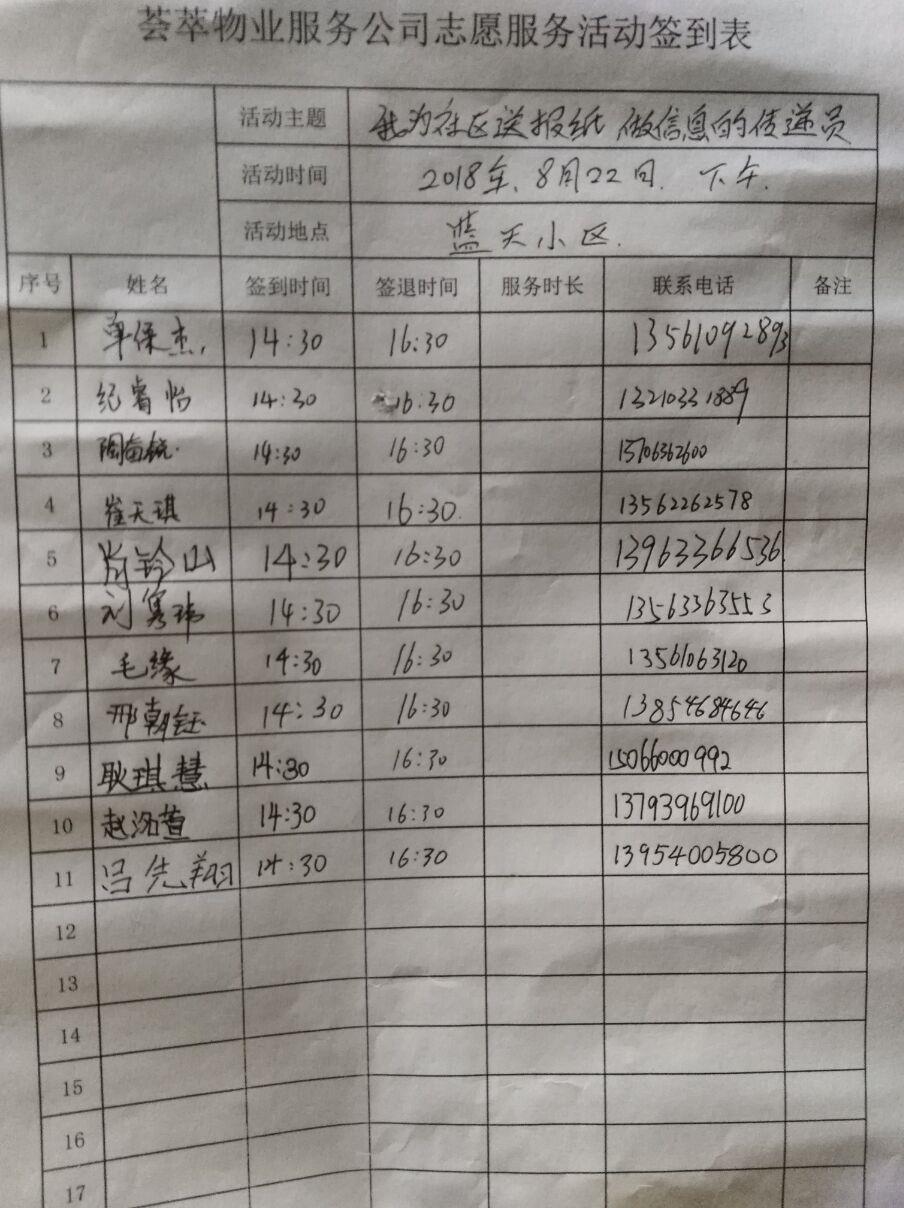 荟萃物业服务公司志愿服务活动签到表
活动主题 我为社区送报纸 做信息的传递员
活动时间 2018年.8月22日. 下午.
活动地点 蓝天小区.
序号 姓名 签到时间 签退时间 服务时长 联系电话 备注
1 单保杰 14:30 16:30 13561092893
2 纪睿怡 14:30 16:30 13210331889
3 14:30 16:30 15706362600
4 崔天琪 14:30 16:30. 13562262578
5 肖铃山 14:30 16:30 13963366536
6 14:30 16:30 13563363553
7 毛缘 14:30 16:30 13561063120
8 邢朝钰 14:30 16:30 13854684646
9 耿琪慧 14:30 16:30 15066000992
10 赵洺萱 14:30 16:30 13793969100
11 吕先翔 14:30 16:30 13954005800
12
13
14
15
16
17